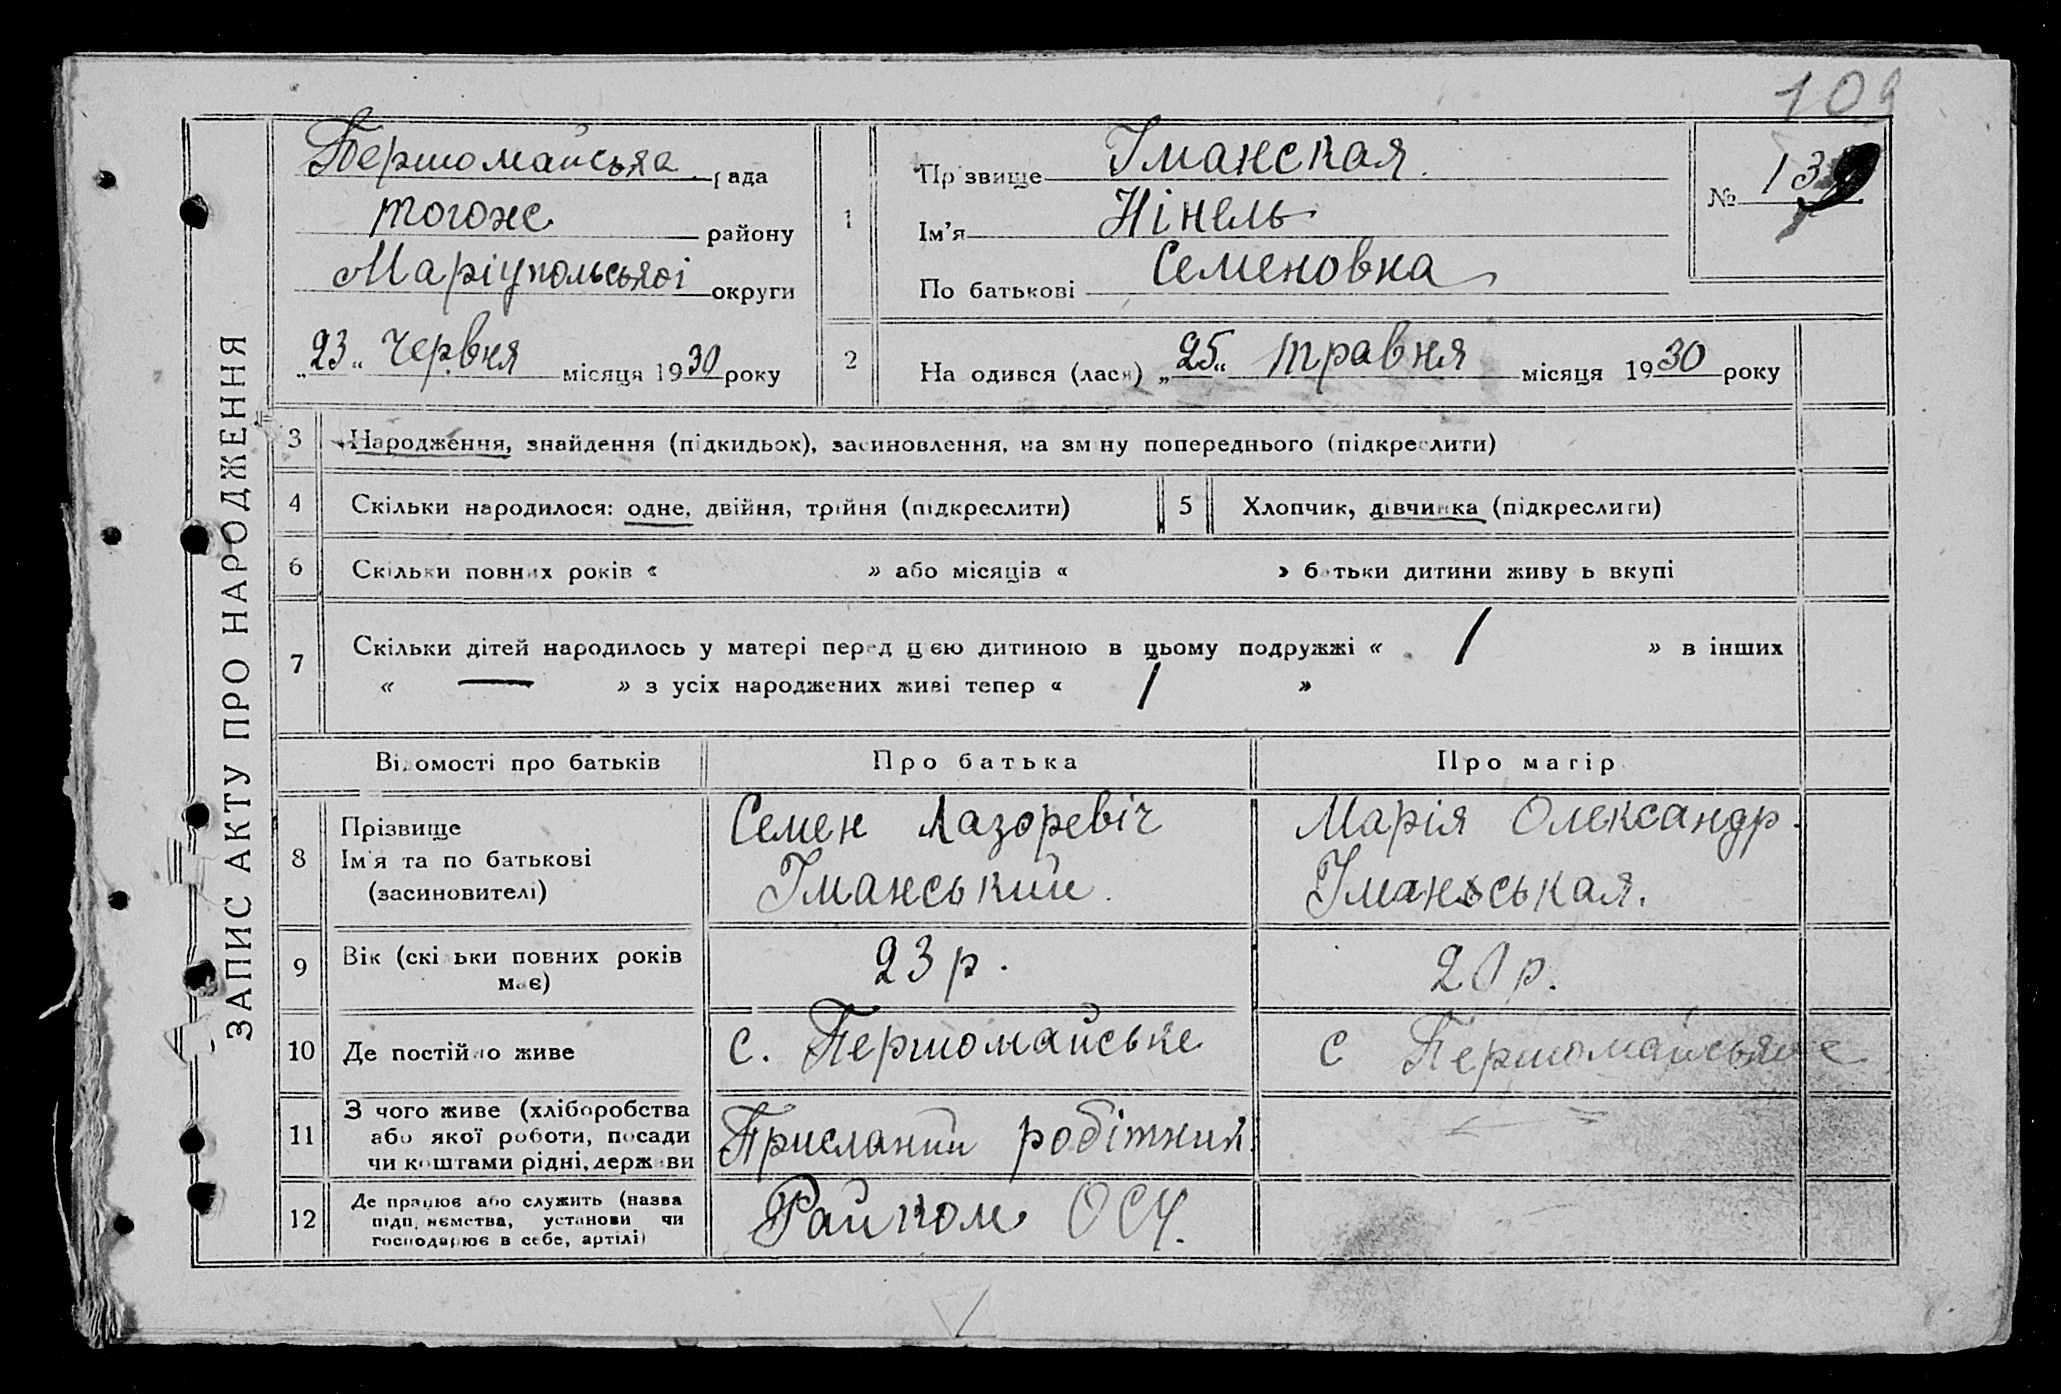 109
ЗАПИС АКТУ ПРО НАРОДЖЕННЯ
Першомайська рада
тогоже району
Маріупольської округи
„23“ Червня місяця 1930 року
1
Прізвище Уманская
Ім'я Нінель
По батькові Семеновна
№ 139
2
На одився (лася) „25“ травня місяця 1930 року
3 Народження, знайдення (підкидьок), засиновлення, на зміну попереднього (підкреслити)
4 Скільки народилося: одне, двійня, трійня (підкреслити)
5 Хлопчик, дівчинка (підкреслити)
6 Скільки повних років « » або місяців « » батьки дитини живуть вкупі
7 Скільки дітей народилось у матері перед цією дитиною в цьому подружжі « 1 » в інших
« — » з усіх народжених живі тепер « 1 »
Відомості про батьків Про батька Про матір
8 Прізвище
Ім'я та по батькові
(засиновителі)
Семен Лазоревіч
Уманський
Марія Олександр.
Уманьськая.
9 Вік (скільки повних років
має)
23 р.
20 р.
10 Де постійно живе
с. Першомайське
с Першомайське
11 З чого живе (хліборобства
або якої роботи, посади
чи коштами рідні, держави
Присланий робітник
12 Де працює або служить (назва
підприємства, установи чи
господарює в себе, артілі)
Райком